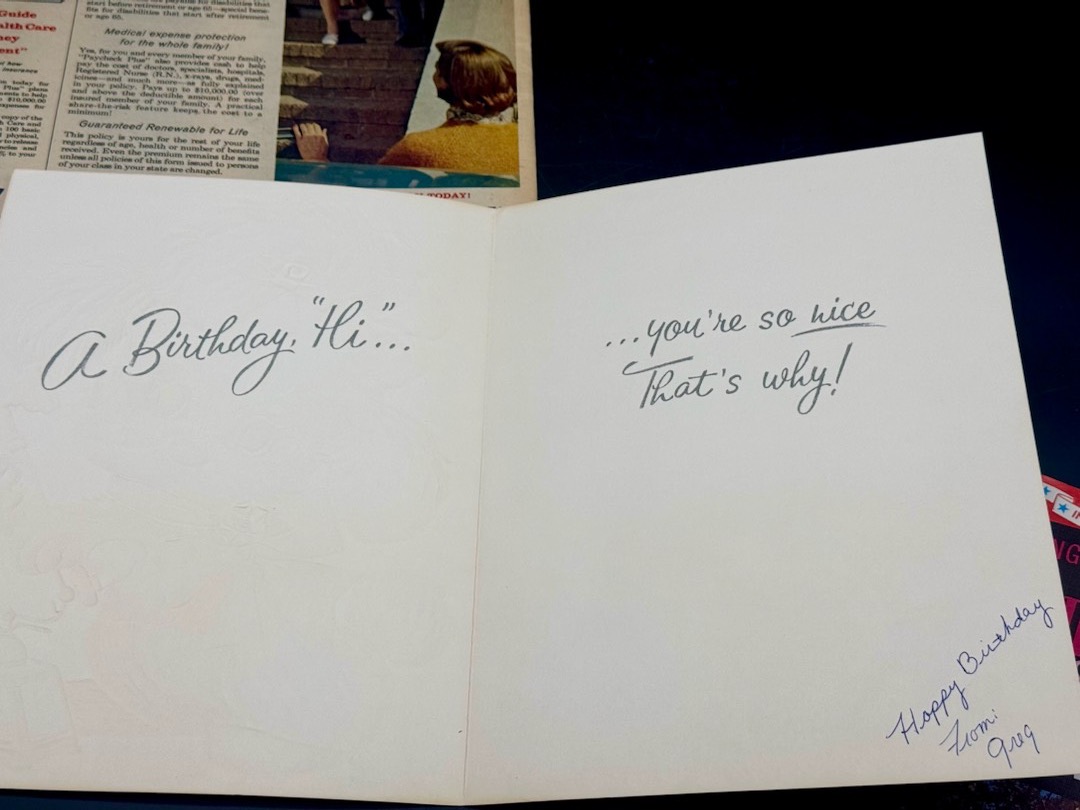 Guide
alth Care
ney
ent"
start before retirement or age 65—special bene-
fits for disabilities that start after retirement
or age 65.
Medical expense protection
for the whole family!
Yes, for you and every member of your family,
"Paycheck Plus" also provides cash to help
pay the cost of doctors, specialists, hospitals,
Registered Nurse (R.N.), x-rays, drugs, med-
icines—and much more—as fully explained
in your policy. Pays up to $10,000.00 (over
and above the deductible amount) for each
insured member of your family. A practical
share-the-risk feature keeps the cost to a
minimum!
Guaranteed Renewable for Life
This policy is yours for the rest of your life
regardless of age, health or number of benefits
received. Even the premium remains the same
unless all policies of this form issued to persons
of your class in your state are changed.
TODAY!
A Birthday, "Hi"...
...you're so nice
That's why!
Happy Birthday
From:
Greg
NG